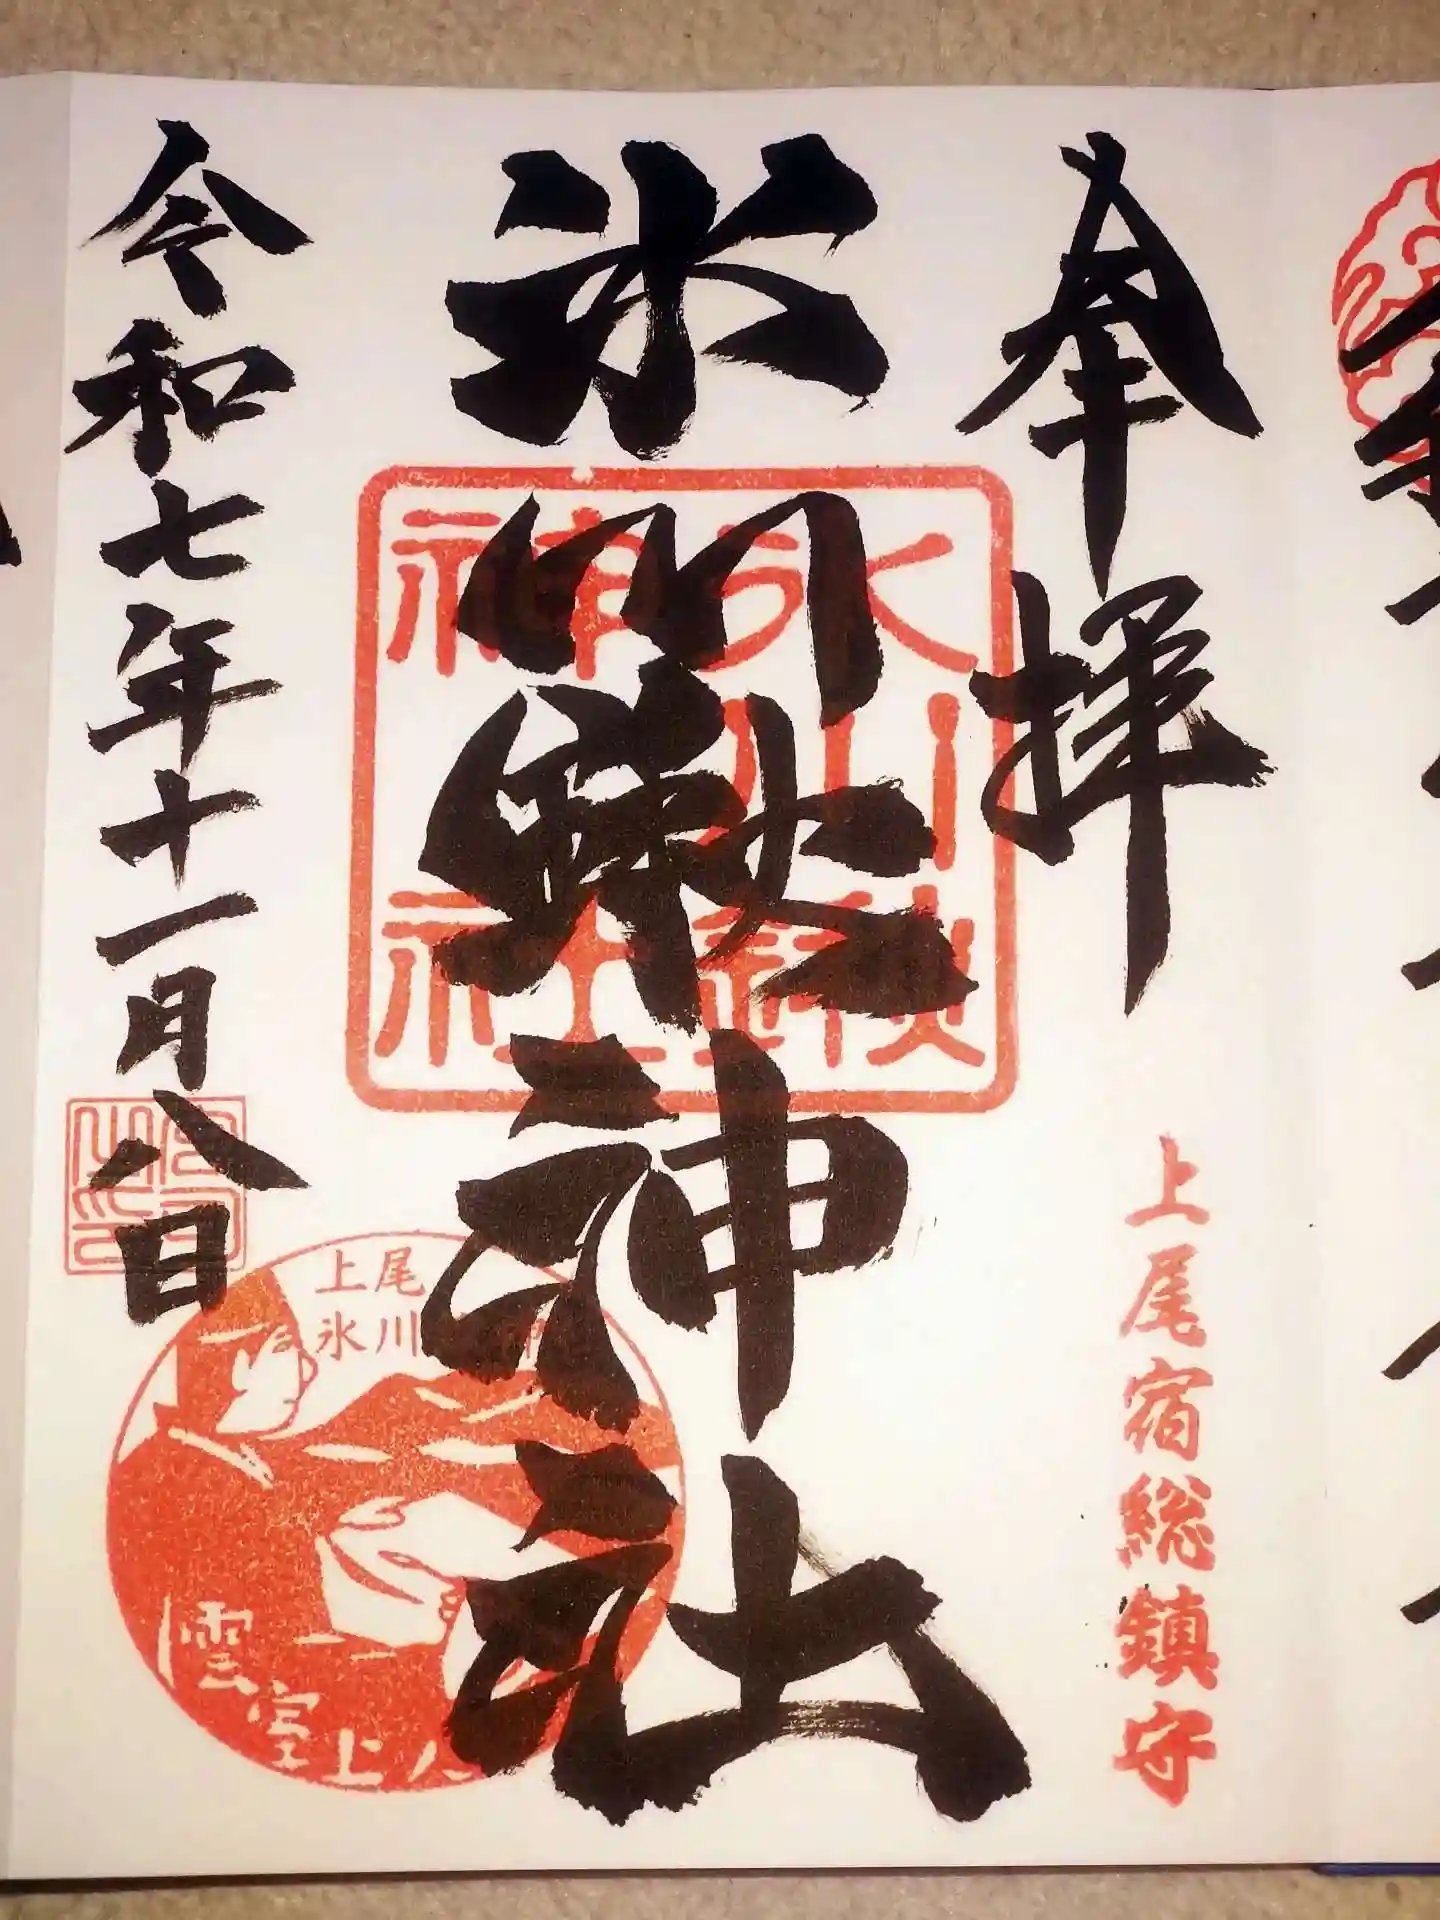 奉拝
上尾宿総鎮守
氷川鍬神社
氷川
鍬
神社
令和七年十一月八日
上尾
氷川
雲室上人